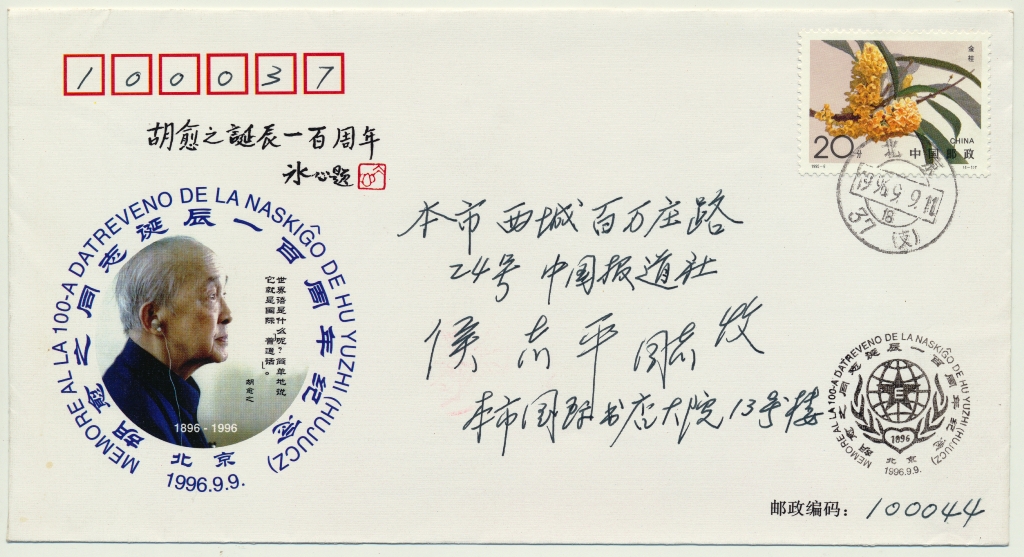 100037
胡愈之誕辰一百周年
冰心题
MEMORE AL LA 100-A DATREVENO DE LA NASKIĜO DE HU YUZHI (HUJUCZ)
胡愈之同志诞辰一百周年纪念
世界语是什么呢?简单地说
它就是国际“普通话”。
胡愈之
1896 - 1996
北京
1996.9.9.
金桂
CHINA
20分
中国邮政
北京
1996.9.9.11
18
37(支)
本市西城百万庄路
24号 中国报道社
侯志平 同志 收
本市国际书店大院13号楼
MEMORE AL LA 100-A DATREVENO DE LA NASKIĜO DE HU YUZHI (HUJUCZ)
胡愈之同志诞辰一百周年纪念
1896
北京
1996.9.9.
邮政编码: 100044